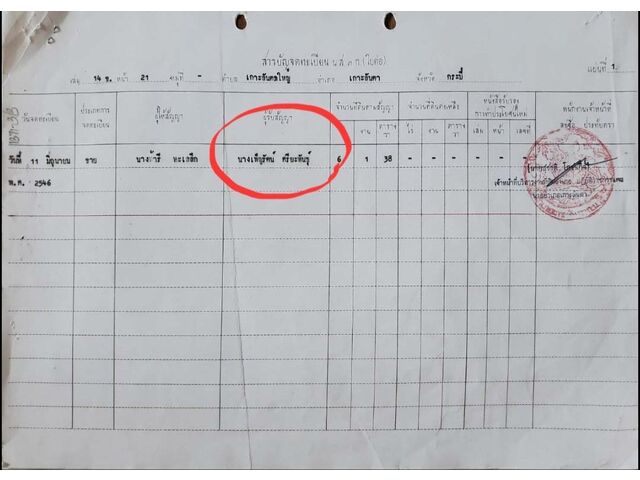 สารบัญจดทะเบียน น.ส. ๓ ก. (ใบต่อ)
แผ่นที่ 1.
เล่ม 14 ข. หน้า 21 หมู่ที่ - ตำบล เกาะลันตาใหญ่ อำเภอ เกาะลันตา จังหวัด กระบี่
วันจดทะเบียน
ประเภทการ
จดทะเบียน
ผู้ให้สัญญา
ผู้รับสัญญา
จำนวนที่ดินตามสัญญา
ไร่ งาน ตาราง วา
จำนวนที่ดินคงเหลือ
ไร่ งาน ตาราง วา
หนังสือรับรอง
การทำประโยชน์ใหม่
เล่ม หน้า เลขที่
พนักงานเจ้าหน้าที่
ลงชื่อ ประทับตรา
วันที่ 11 มิถุนายน ขาย ทะเลลึก นางเพ็ญรัตน์ ศรียะพันธุ์ 6 1 38 - - - - - -
พ.ศ. 2546